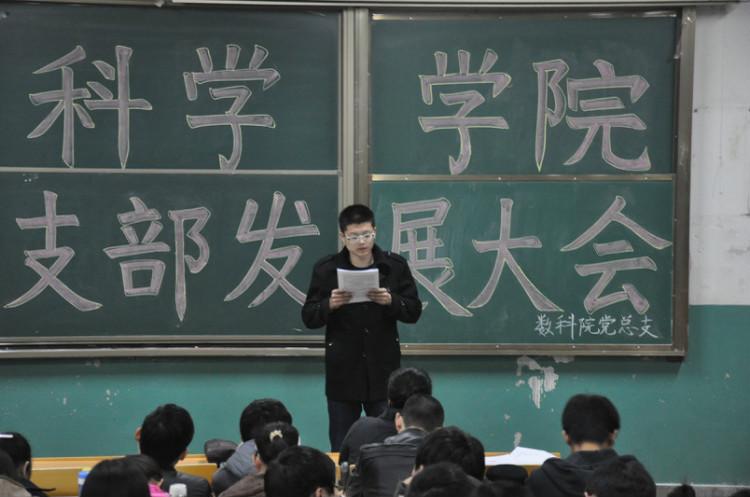 科学学院
支部发展大会
数科院党总支